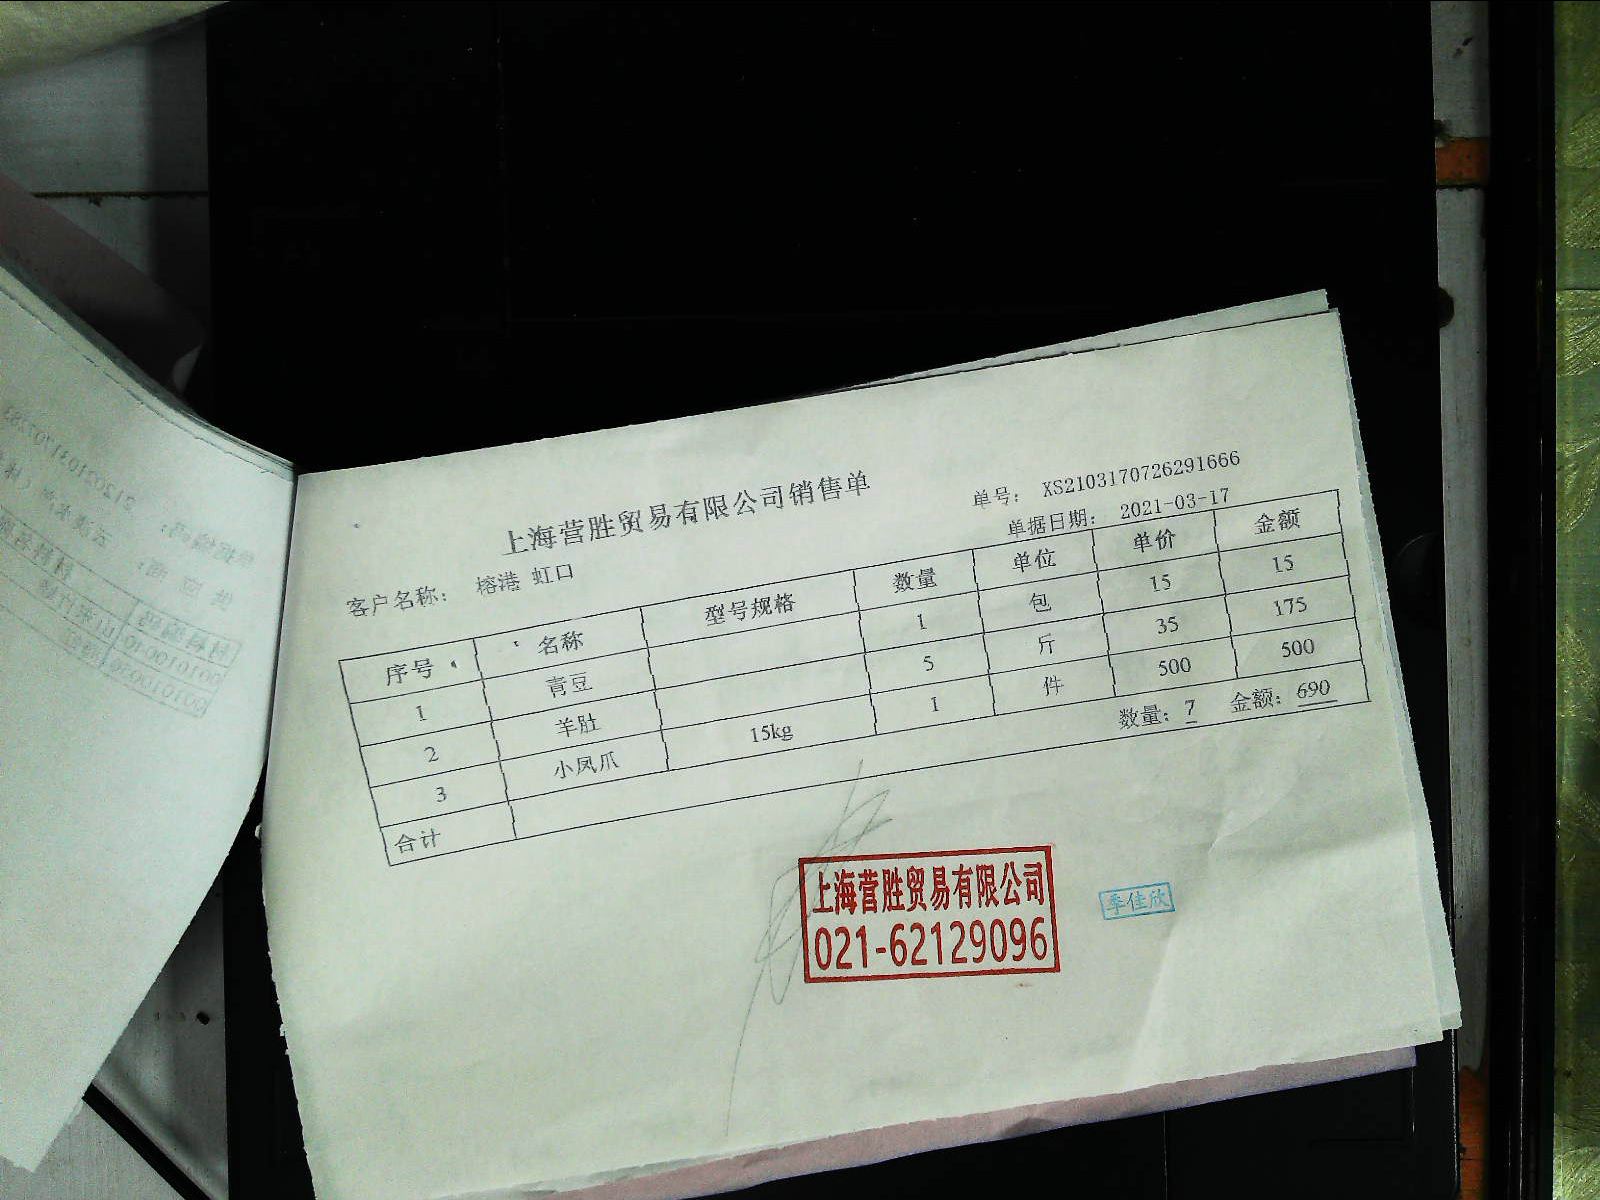 上海营胜贸易有限公司销售单
单号: XS2103170726291666
客户名称: 榕港 虹口 单据日期: 2021-03-17
序号 名称 型号规格 数量 单位 单价 金额
1 青豆 1 包 15 15
2 羊肚 5 斤 35 175
3 小凤爪 15kg 1 件 500 500
合计 数量: 7 金额: 690
上海营胜贸易有限公司
021-62129096
季佳欣